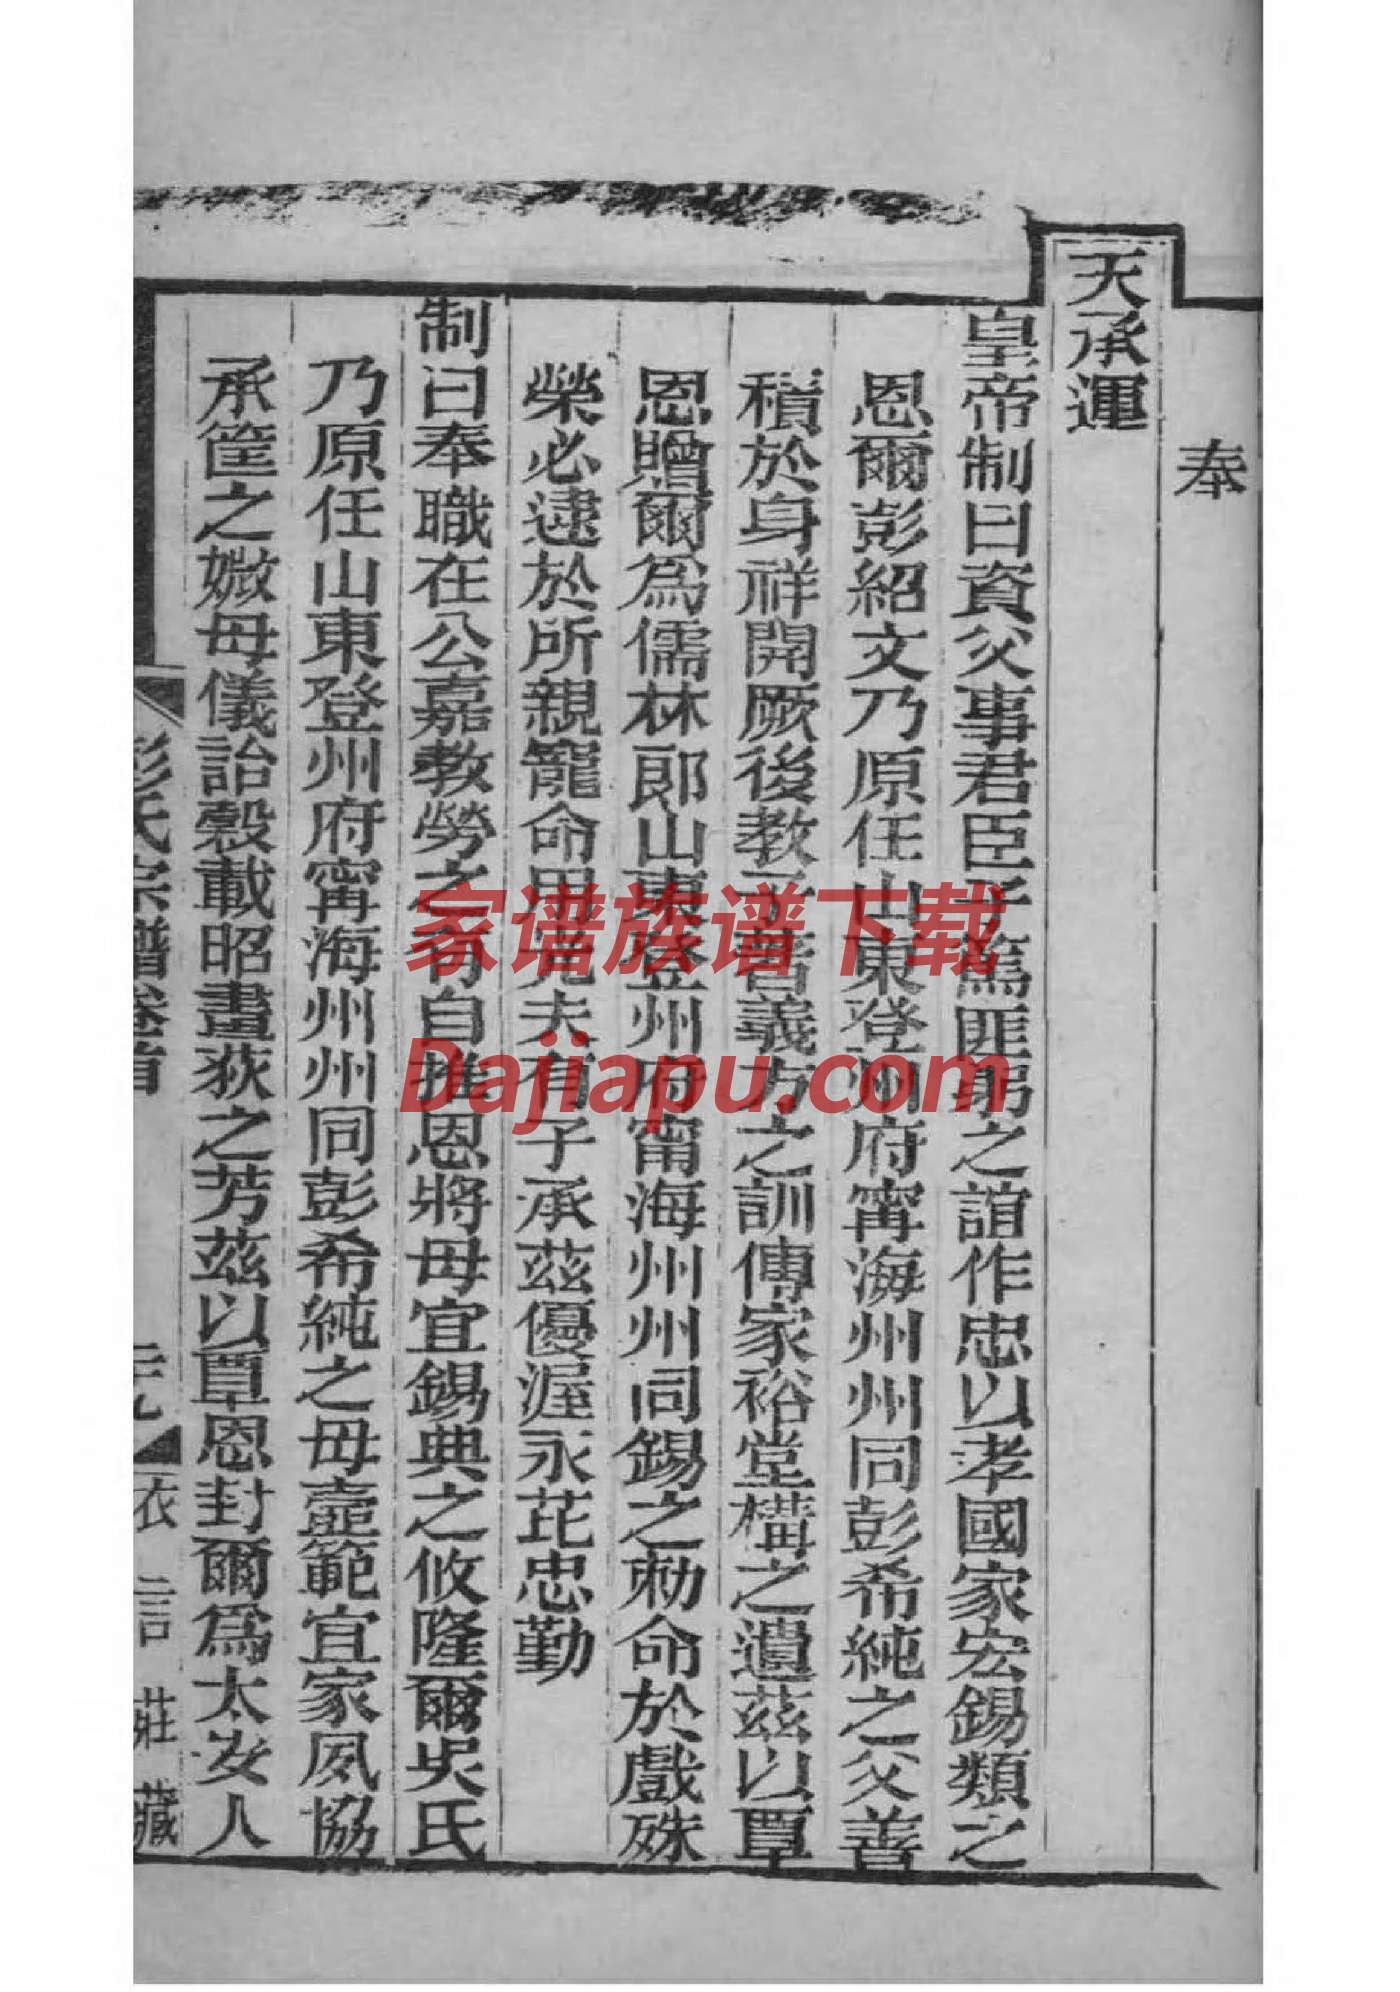 奉
天承運
皇帝制曰資父事君臣子篤匪躬之誼作忠以孝國家宏錫類之
恩爾彭紹文乃原任山東登州府甯海州州同彭希純之父善
積於身祥開厥後教子著義方之訓傳家裕堂構之遺茲以覃
恩贈爾為儒林郎山東登州府甯海州州同錫之勅命於戲殊
榮必逮於所親寵命用光夫有子承茲優渥永芘忠勤
制曰奉職在公嘉教勞之有自推恩將母宜錫典之攸隆爾吳氏
乃原任山東登州府甯海州州同彭希純之母壼範宜家夙協
承筐之媺母儀詒穀載昭畫荻之芳茲以覃恩封爾為太安人
彭氏宗譜卷首
衣言莊藏
家谱族谱下载
Dajiapu.com